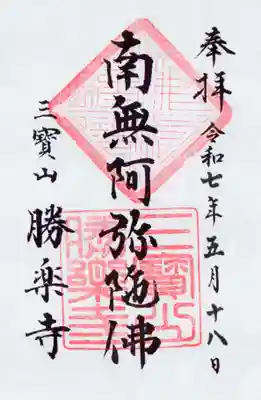 奉拝 令和七年五月十八日
南無阿弥陀佛
三寶山 勝楽寺
三寶山
勝樂寺